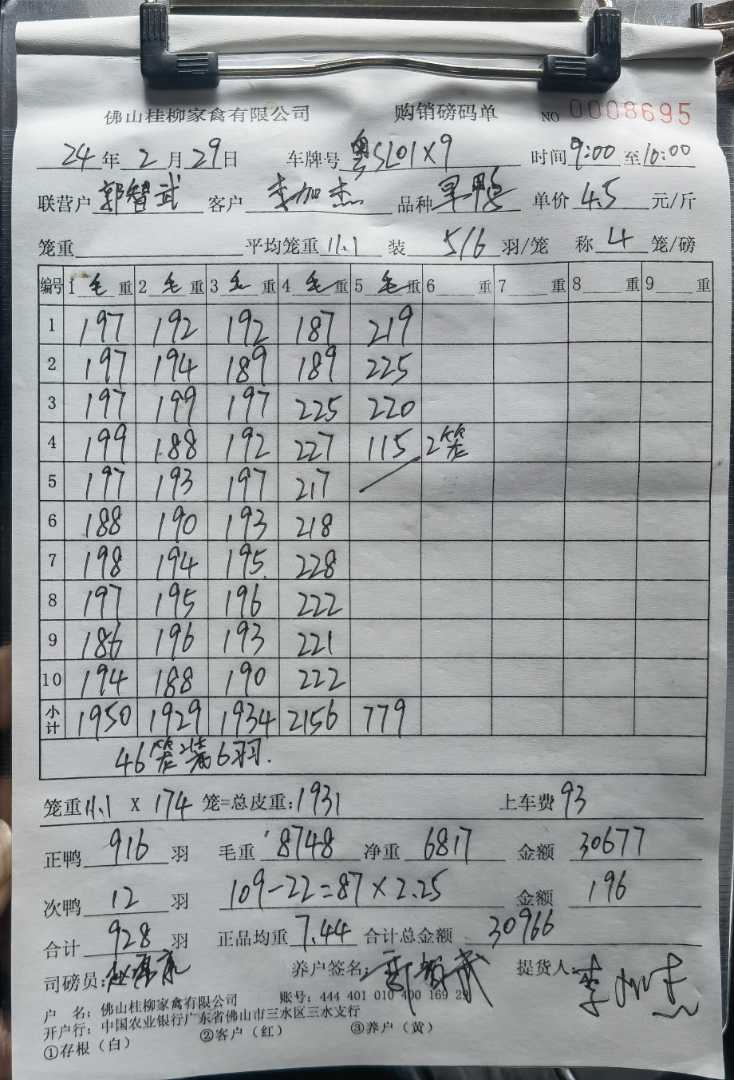 佛山桂柳家禽有限公司 购销磅码单 NO 0008695
24年2月29日 车牌号 粤SL01X9 时间 9:00至10:00
联营户 郭智武 客户 李加杰 品种 旱鸭 单价 4.5 元/斤
笼重 平均笼重 11.1 装 5/6 羽/笼 称 4 笼/磅
编号 1 毛 重 2 毛 重 3 毛 重 4 毛 重 5 毛 重 6 重 7 重 8 重 9 重
1 197 192 192 187 219
2 197 194 189 189 225
3 197 199 197 225 220
4 199 188 192 227 115 2笼
5 197 193 197 217
6 188 190 193 218
7 198 194 195 228
8 197 195 196 222
9 186 196 193 221
10 194 188 190 222
小计 1950 1929 1934 2156 779
46笼装6羽.
笼重 11.1 X 174 笼=总皮重: 1931 上车费 93
正鸭 916 羽 毛重 8748 净重 6817 金额 30677
次鸭 12 羽 109-22=87×2.25 金额 196
合计 928 羽 正品均重 7.44 合计总金额 30966
司磅员: 养户签名: 郭智武 提货人: 李加杰
户 名: 佛山桂柳家禽有限公司 账号: 444 401 010 400 169 29
开户行: 中国农业银行广东省佛山市三水区三水支行
①存根(白) ②客户(红) ③养户(黄)